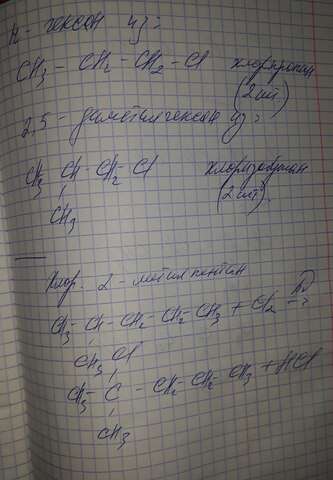 н- гексан из:
CH3 - CH2 - CH2 - Cl хлорпропан
(2 шт)
2,5 - диметилгексан из:
CH3 CH - CH2 Cl хлоризобутан
CH3 (2 шт).
Хлор. 2 - метилпентан
CH3 - CH - CH2 - CH2 - CH3 + Cl2 →
CH3 Cl
CH3 - C - CH2 - CH2 CH3 + HCl
CH3